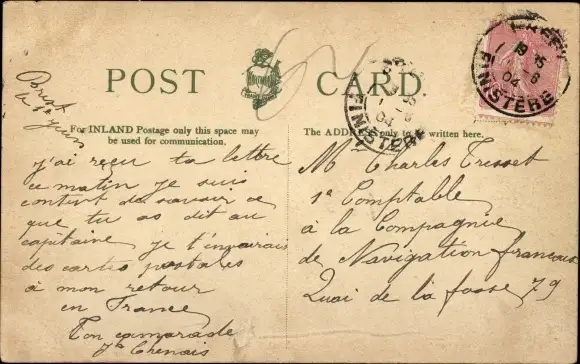 POST CARD
For INLAND Postage only this space may
be used for communication.
The ADDRESS only to be written here.
Brest
le 1er Juin
j'ai reçu ta lettre
ce matin je suis
content de savoir ce
que tu as dit au
capitaine je t'enverais
des cartes postales
à mon retour
en France
Ton camarade
Chenais
BREST
19 35
1 -6
04
FINISTERE
FINISTERE
04
Mr Charles Tresset
1e Comptable
à la Compagnie
de Navigation francaise
Quai de la fosse 79